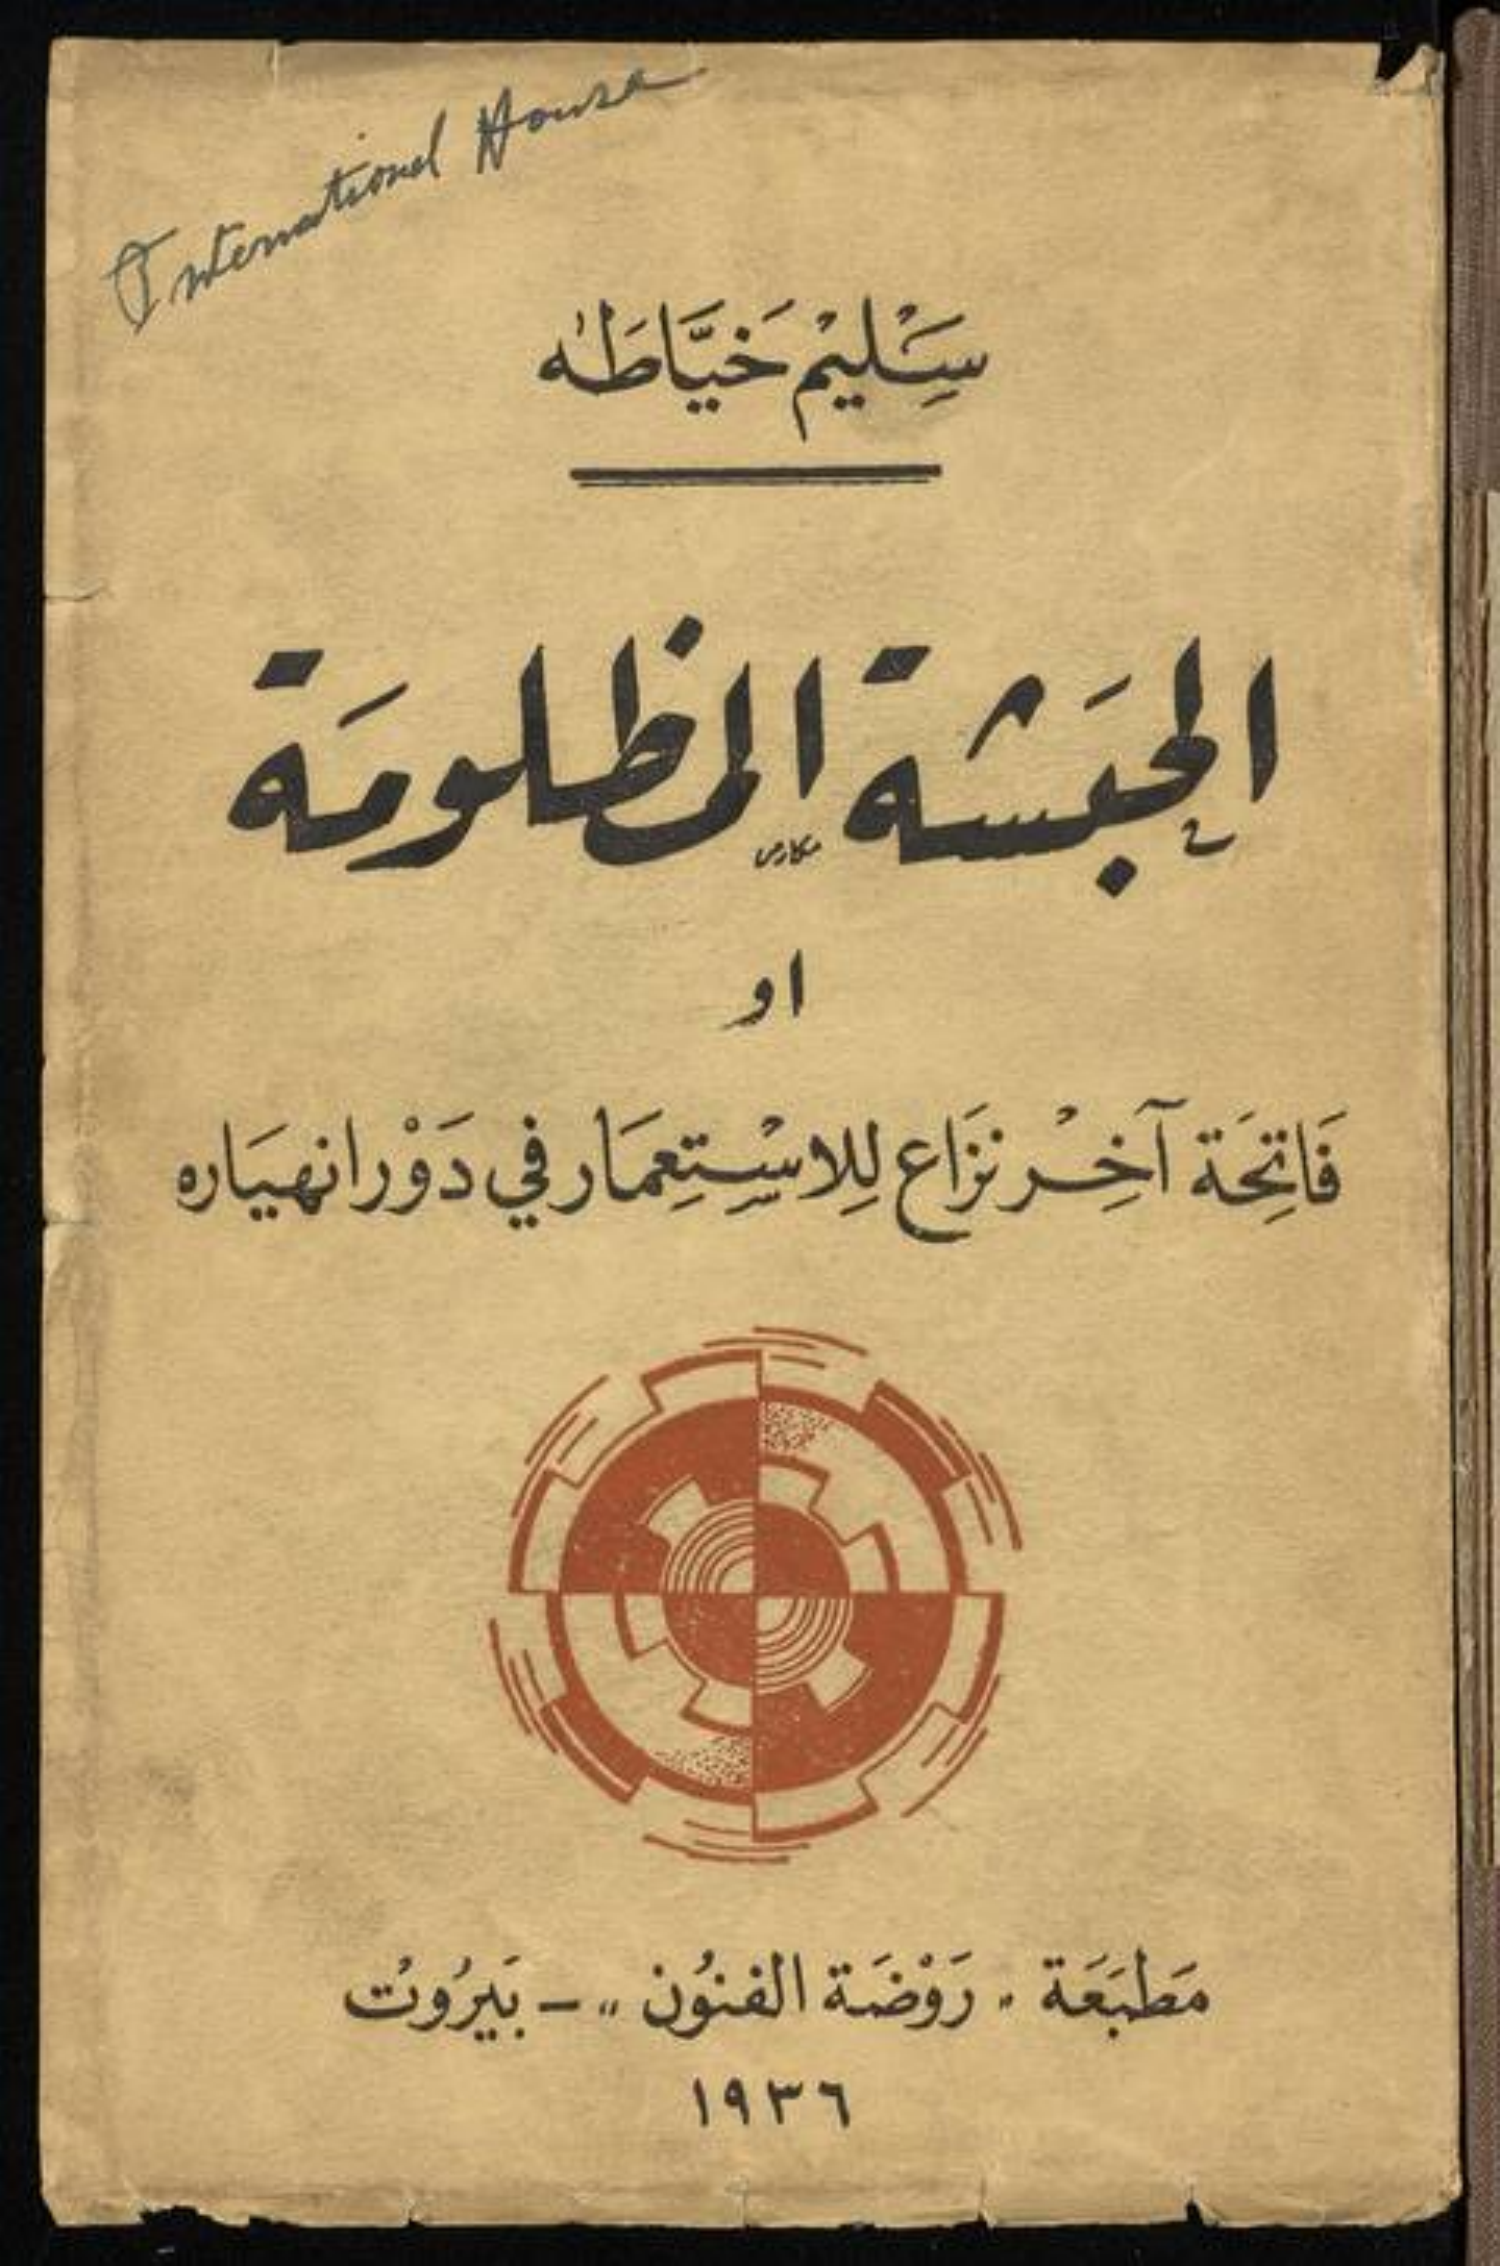 International House
سَلِيمْ خَيَّاطَه
الحبَشة المظلومَة
او
فَاتِحَة آخِرْ نزَاع لِلاسْتِعِمَار في دَوْر انهيَاره
مَطبَعَة " رَوْضَة الفنوُن " – بَيرُوتْ
١٩٣٦